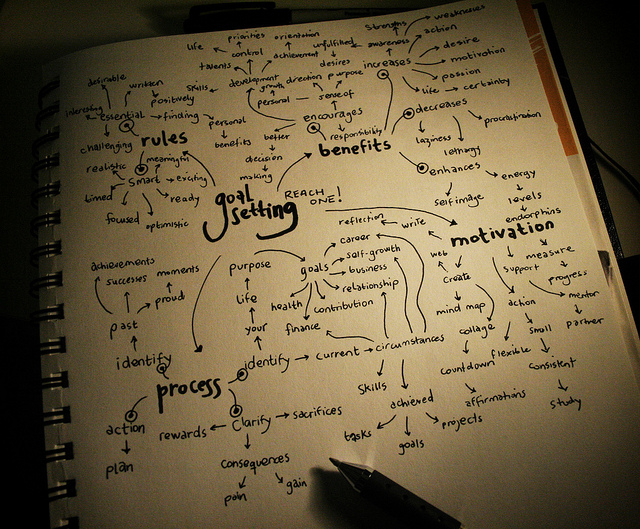 strengths
weaknesses
priorities
orientation
life
control
achievement
unfulfilled
desires
awareness
action
desire
motivation
passion
life
certainty
talents
skills
development
growth
direction
purpose
personal
sense of
increases
decreases
procrastination
laziness
lethargy
enhances
energy
levels
endorphins
self image
desirable
written
positively
interesting
essential
finding
personal
benefits
encourages
responsibility
better
decision
making
challenging
rules
benefits
realistic
meaningful
smart
exciting
timed
ready
focused
optimistic
goal
setting
REACH
ONE!
reflection
write
motivation
career
self-growth
business
relationship
contribution
finance
health
goals
purpose
life
your
web
create
mind map
collage
countdown
support
measure
progress
mentor
partner
action
small
consistent
study
flexible
affirmations
achievements
successes
moments
proud
past
identify
process
identify
current
circumstances
skills
achieved
tasks
goals
projects
action
plan
rewards
clarify
sacrifices
consequences
pain
gain